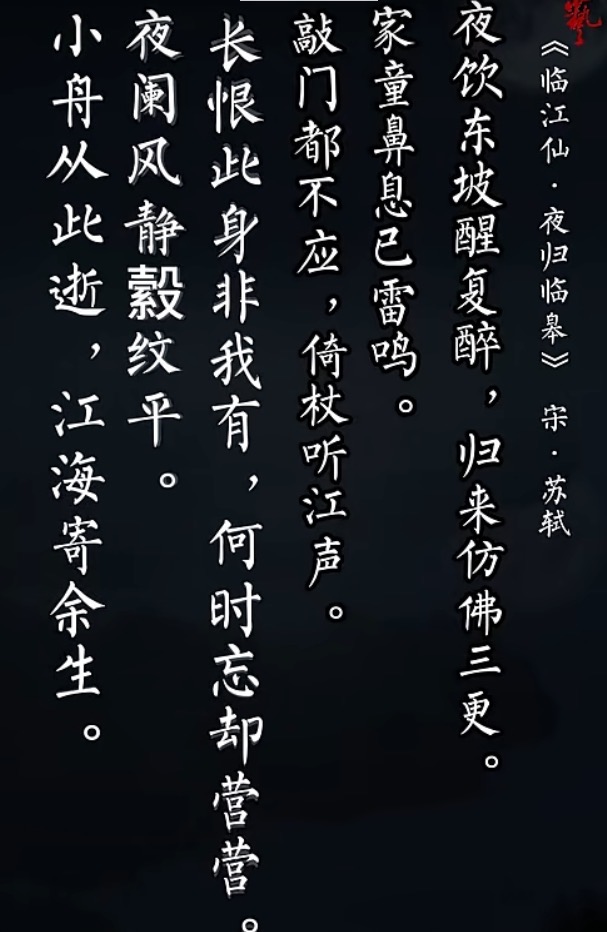 《临江仙·夜归临皋》 宋·苏轼
夜饮东坡醒复醉，归来仿佛三更。
家童鼻息已雷鸣。
敲门都不应，倚杖听江声。
长恨此身非我有，何时忘却营营。
夜阑风静縠纹平。
小舟从此逝，江海寄余生。